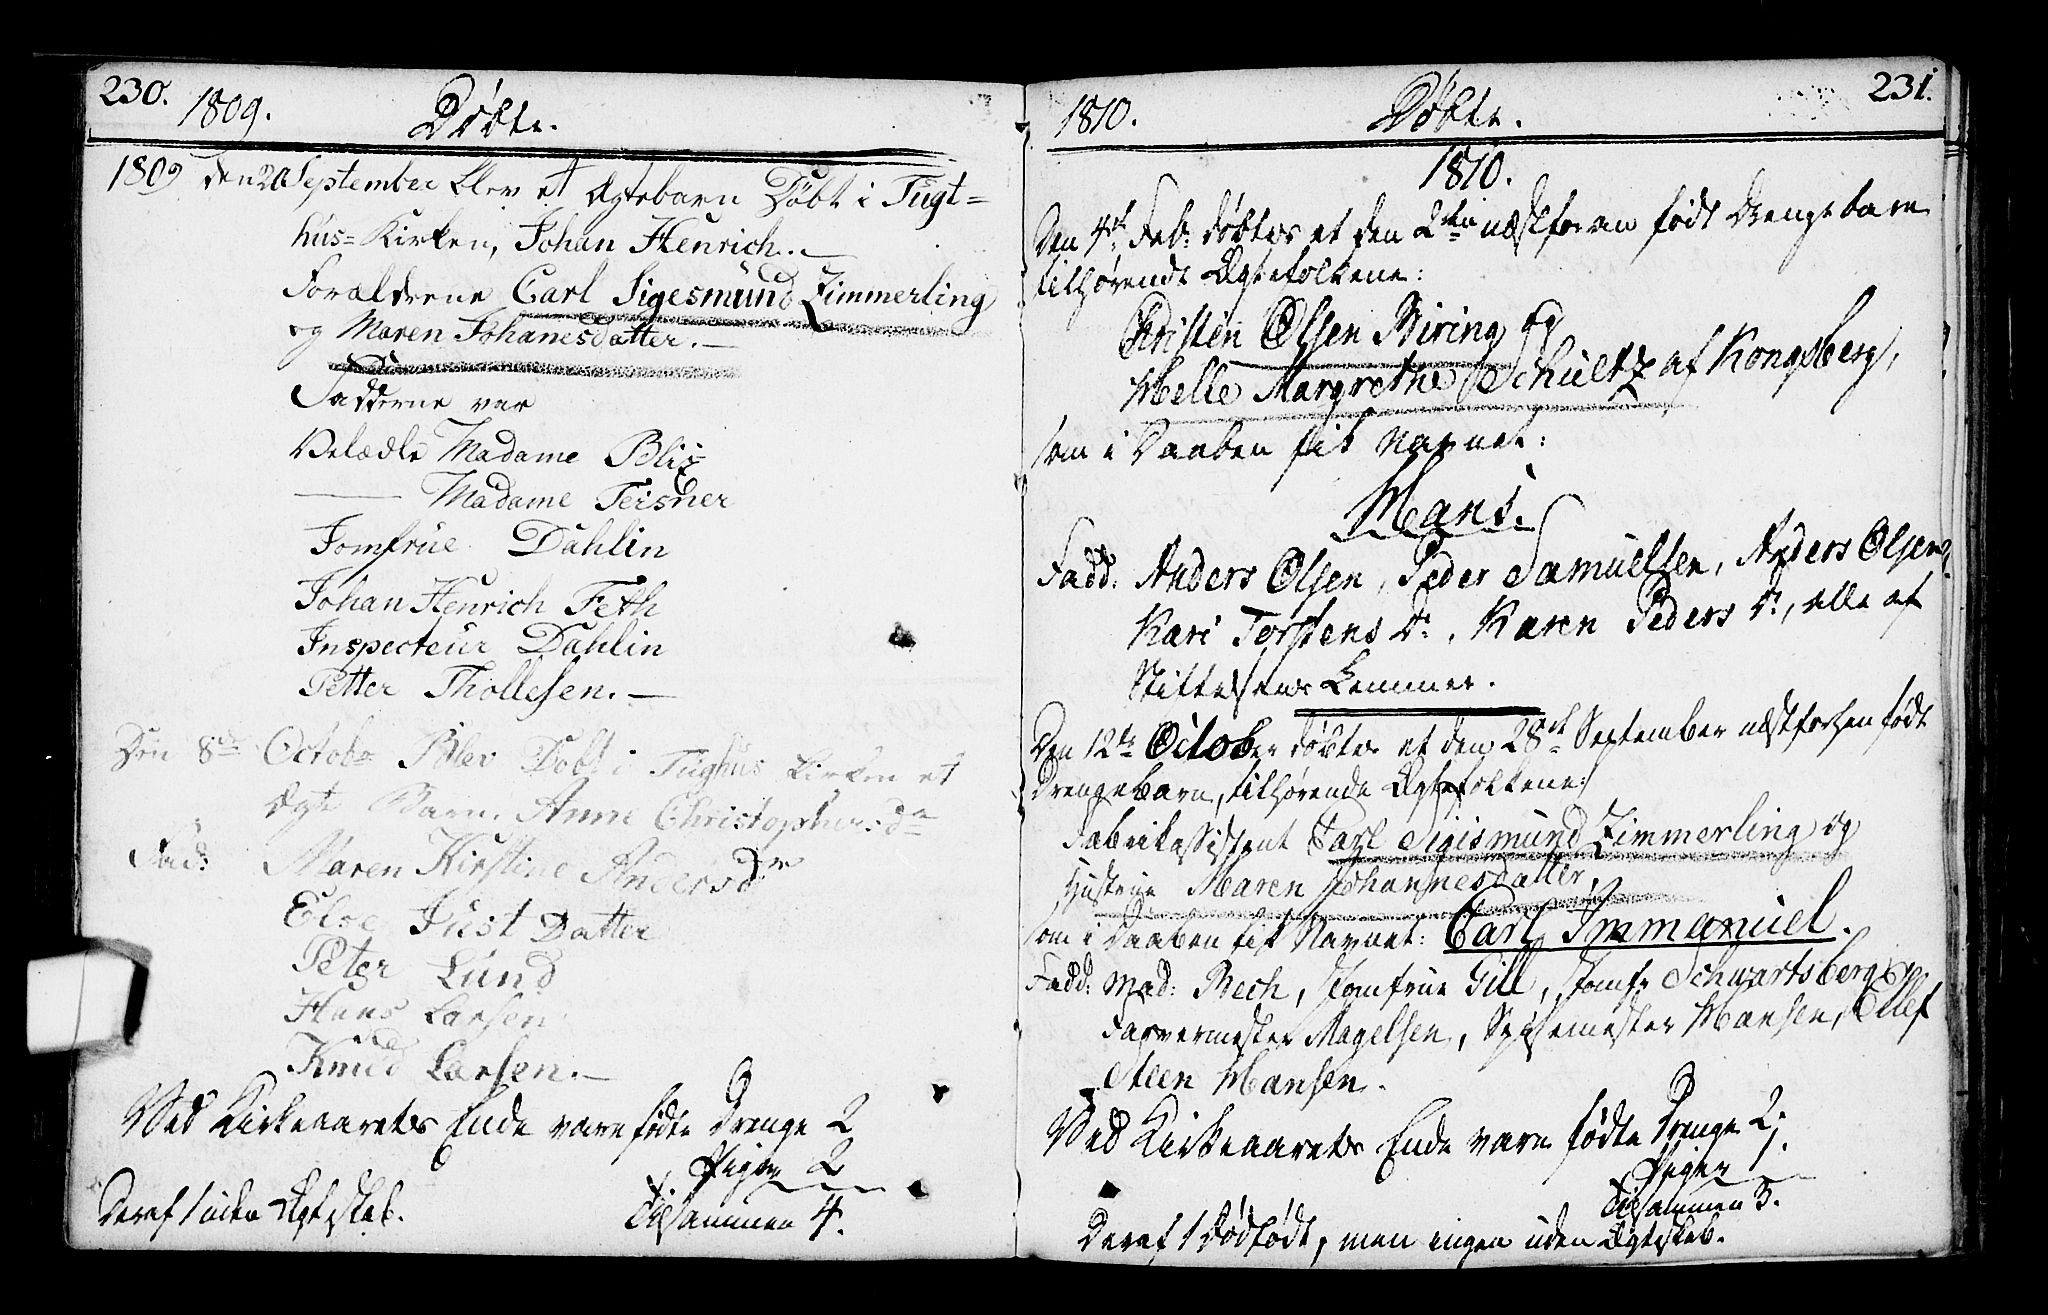 230.
1809. Døbte.
1809 den 20 September blev et Ægtebarn Døbt i Tugt=
hus=Kirken, Johan Henrich. —
Forældrene Carl Sigesmund Zimmerling
og Maren Johanesdatter. —
Fadderne var
Velædle Madame Blix
—— Madame Teisner
Jomfrue Dahlin
Johan Henrich Feth
Inspecteur Dahlin
Petter Thollesen. —
Den 8de Octobr Blev Dobt i Tughus kirken et
Ægte Barn. Anne Christophersdr
Fad: Maren Kirstine Andersdr
Else Just Datter
Peter Lund
Hans Larsen
Knud Larsen. —
Ved Kirkeaarets Ende vare fødte Drenge 2
Piger 2
Deraf 1 uden Ægteskab. Tilsammen 4.
231.
1810. Døbte.
1810.
Den 4de Feb: døbtes et den 2den næstforan født Drengebarn
tilhørende Ægtefolkene:
Christen Olsen Biring og
Helle Margrethe Schultz af Kongsberg,
som i Daaben fik Navnet:
Hans.
Fadd: Anders Olsen, Peder Samuelsen, Anders Olsen,
Kari Torstens D:, Karen Peders D:, alle af
Stiftelsens Lemmer.
Den 12te October døbtes et den 28de September næstforhen født
Drengebarn, tilhørende Ægtefolkene:
Fabrikassistent Carl Sigismund Zimmerling og
Hustrue Maren Johannesdatter,
som i Daaben fik Navnet: Carl Immanuel.
Fadd: Mad: Bech, Jomfrue Gill, Jomfr Schwartsberg,
Farvermester Magelsen, Spisemester Hansen, Ellef
Steen Hansen.
Ved Kirkeaarets Ende vare fødte Drenge 2;
Piger 1.
Tilsammen 3.
Deraf 1 Dødfødt, men ingen uden Ægteskab.